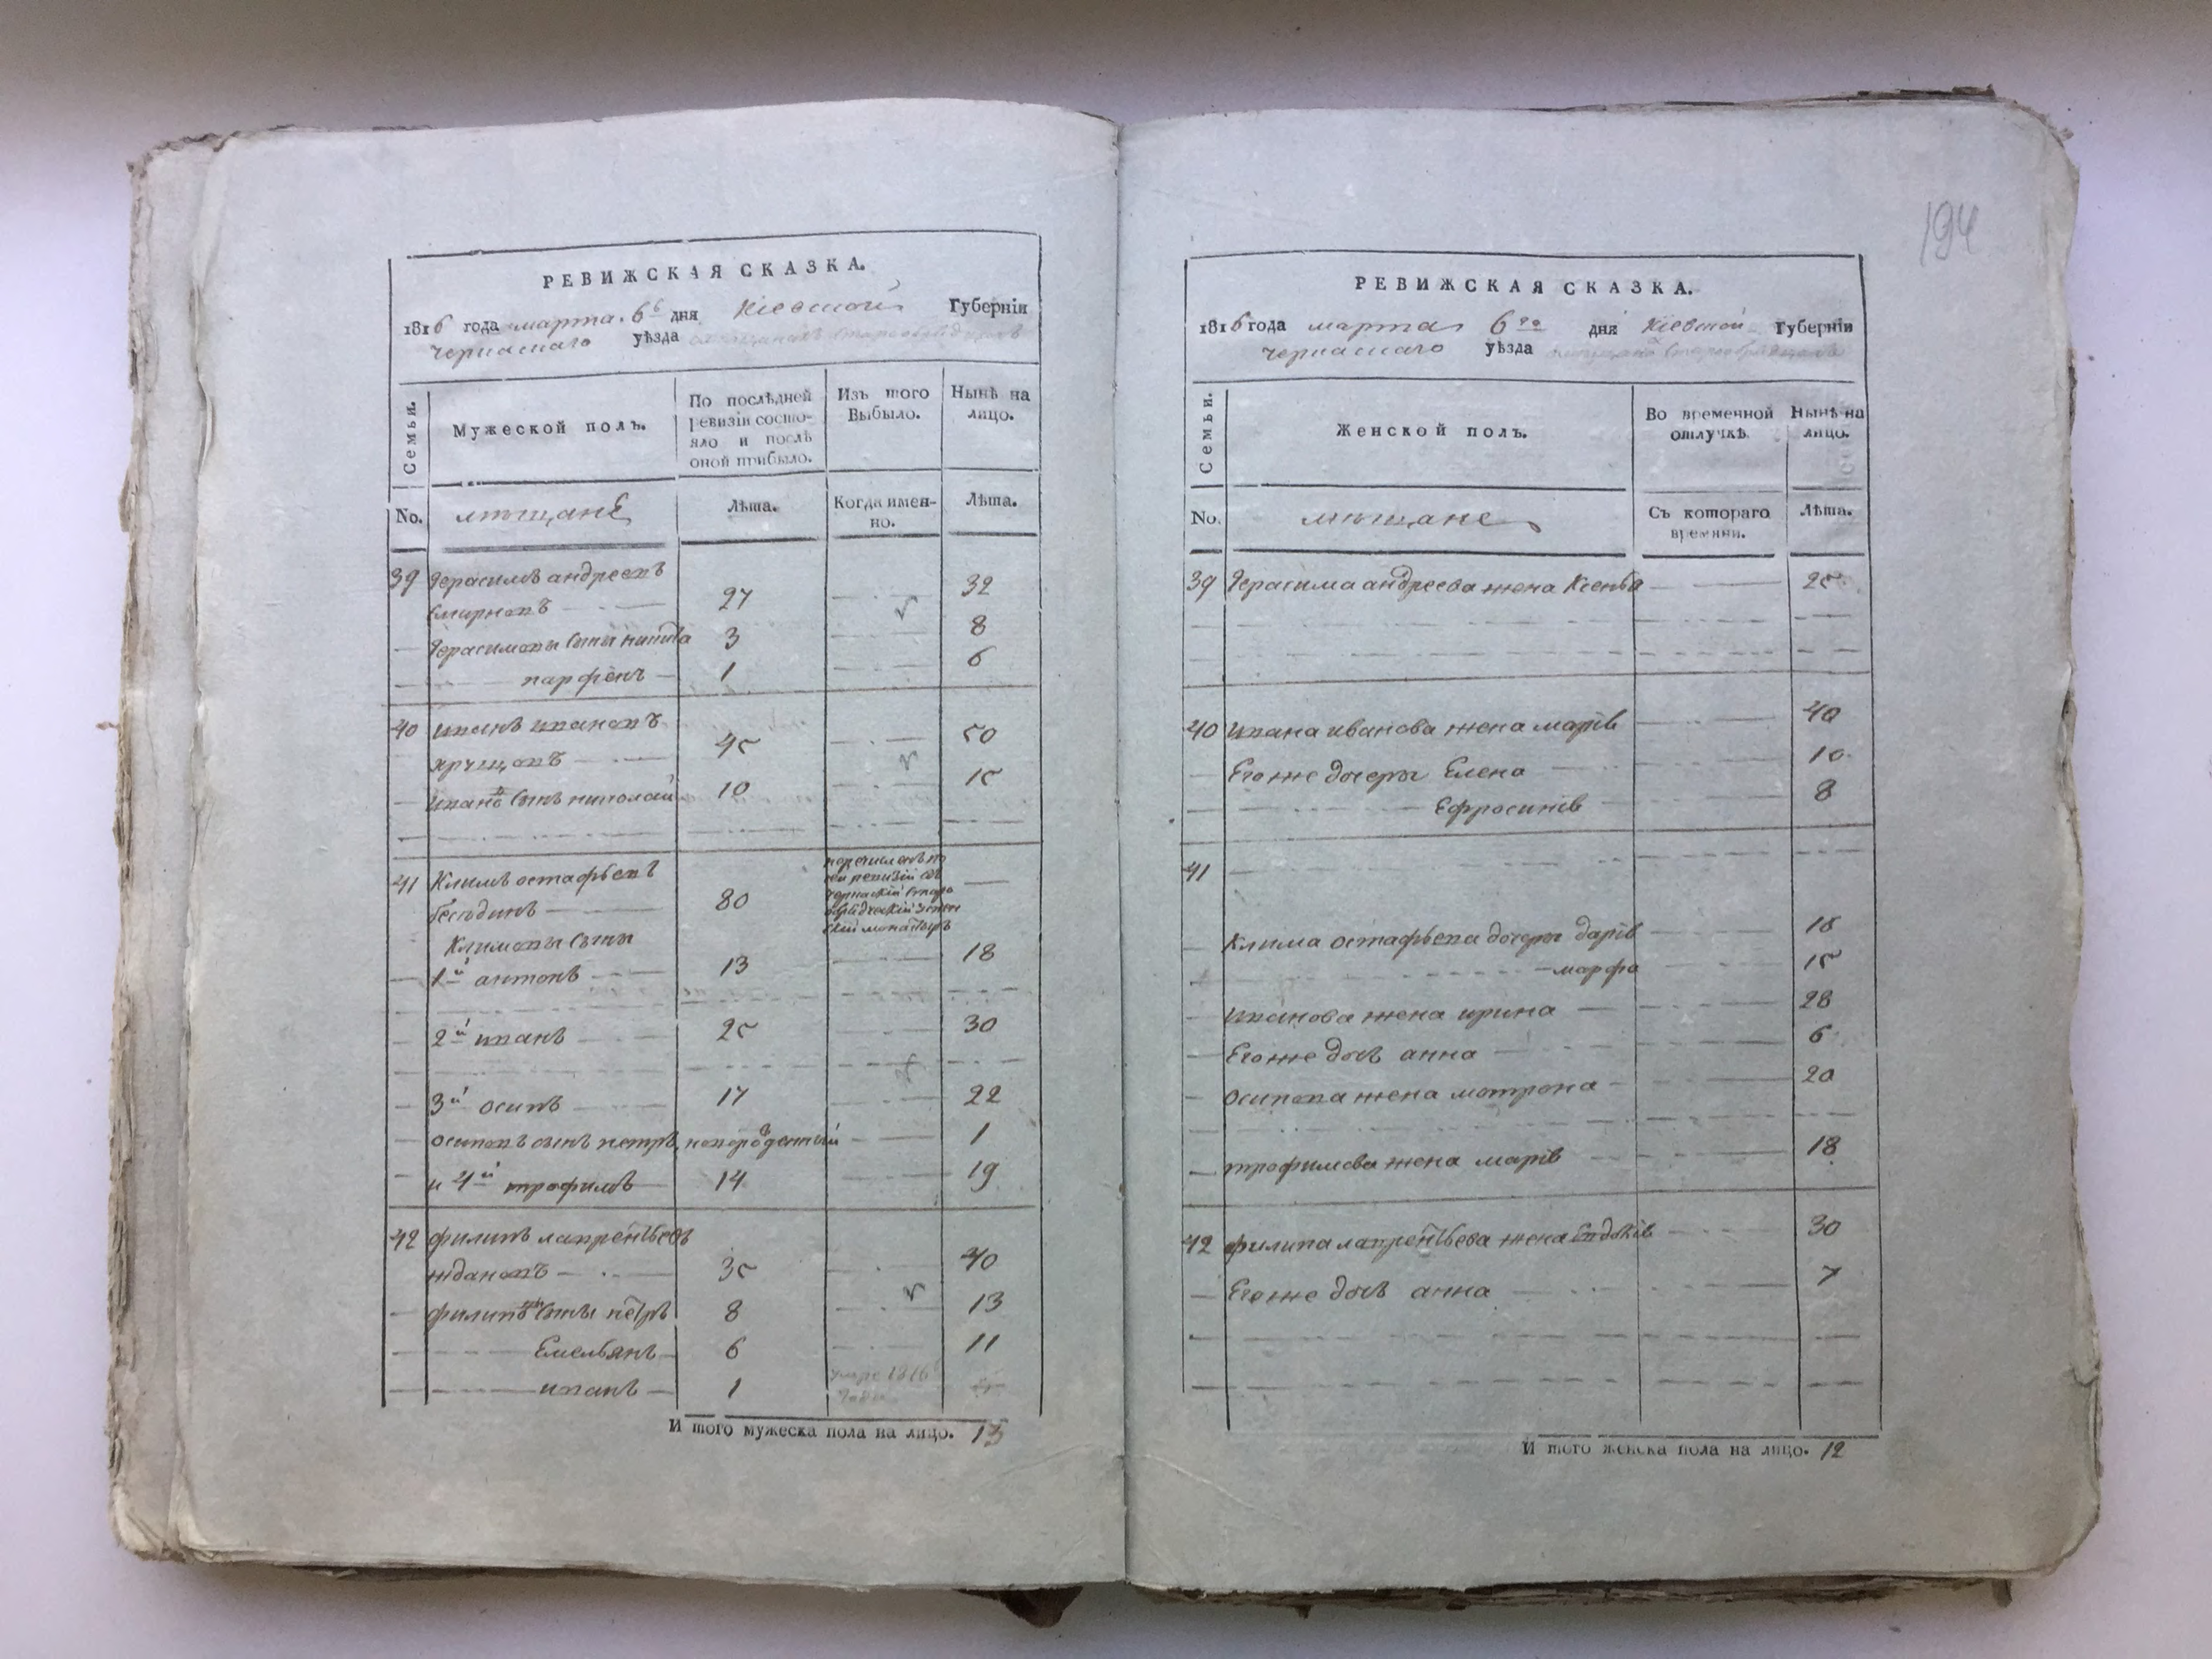 194
РЕВИЖСКАЯ СКАЗКА.
1816 года марта 6го дня Кіевской Губерніи
Черкаскаго уѣзда
Семьи.
Мужеской полъ.
По послѣдней ревизіи состояло и послѣ оной прибыло.
Изъ того Выбыло.
Нынѣ на лицо.
No. мѣщане Лѣта. Когда именно. Лѣта.
39 Герасимъ андреевъ
Смирновъ 27 32
Герасимовы сыны никита 3 8
парфенъ 1 6
40 иванъ ивановъ
45 50
ивановъ сынъ николай 10 15
41 Климъ остафьевъ
беседин 80
Климовы сыны
1й антонъ 13 18
2й иванъ 25 30
3й осипъ 17 22
осиповъ сынъ петръ, новорожденный 1
и 4й трофимъ 14 19
42 филипъ лаврентьевъ
ждановъ 35 40
филиповы сыны петръ 8 13
Емельянъ 6 11
иванъ 1 умре 1816 года
И того мужеска пола на лицо. 13
РЕВИЖСКАЯ СКАЗКА.
1816 года марта 6го дня Кіевской Губерніи
Черкаскаго уѣзда
Семьи.
Женской полъ.
Во временной отлучкѣ.
Нынѣ на лицо.
No. мѣщане Съ котораго времяни. Лѣта.
39 Герасима андреева жена Ксенья 25
40 ивана иванова жена марія 40
Егоже дочери Елена 10
Ефросинія 8
41
Клима остафьева дочери дарія 18
марфа 15
иванова жена ирина 28
Егоже дочь анна 6
осипова жена матрона 20
трофимова жена марія 18
42 филипа лаврентьева жена Евдокія 30
Егоже дочь анна 7
И того женска пола на лицо. 12